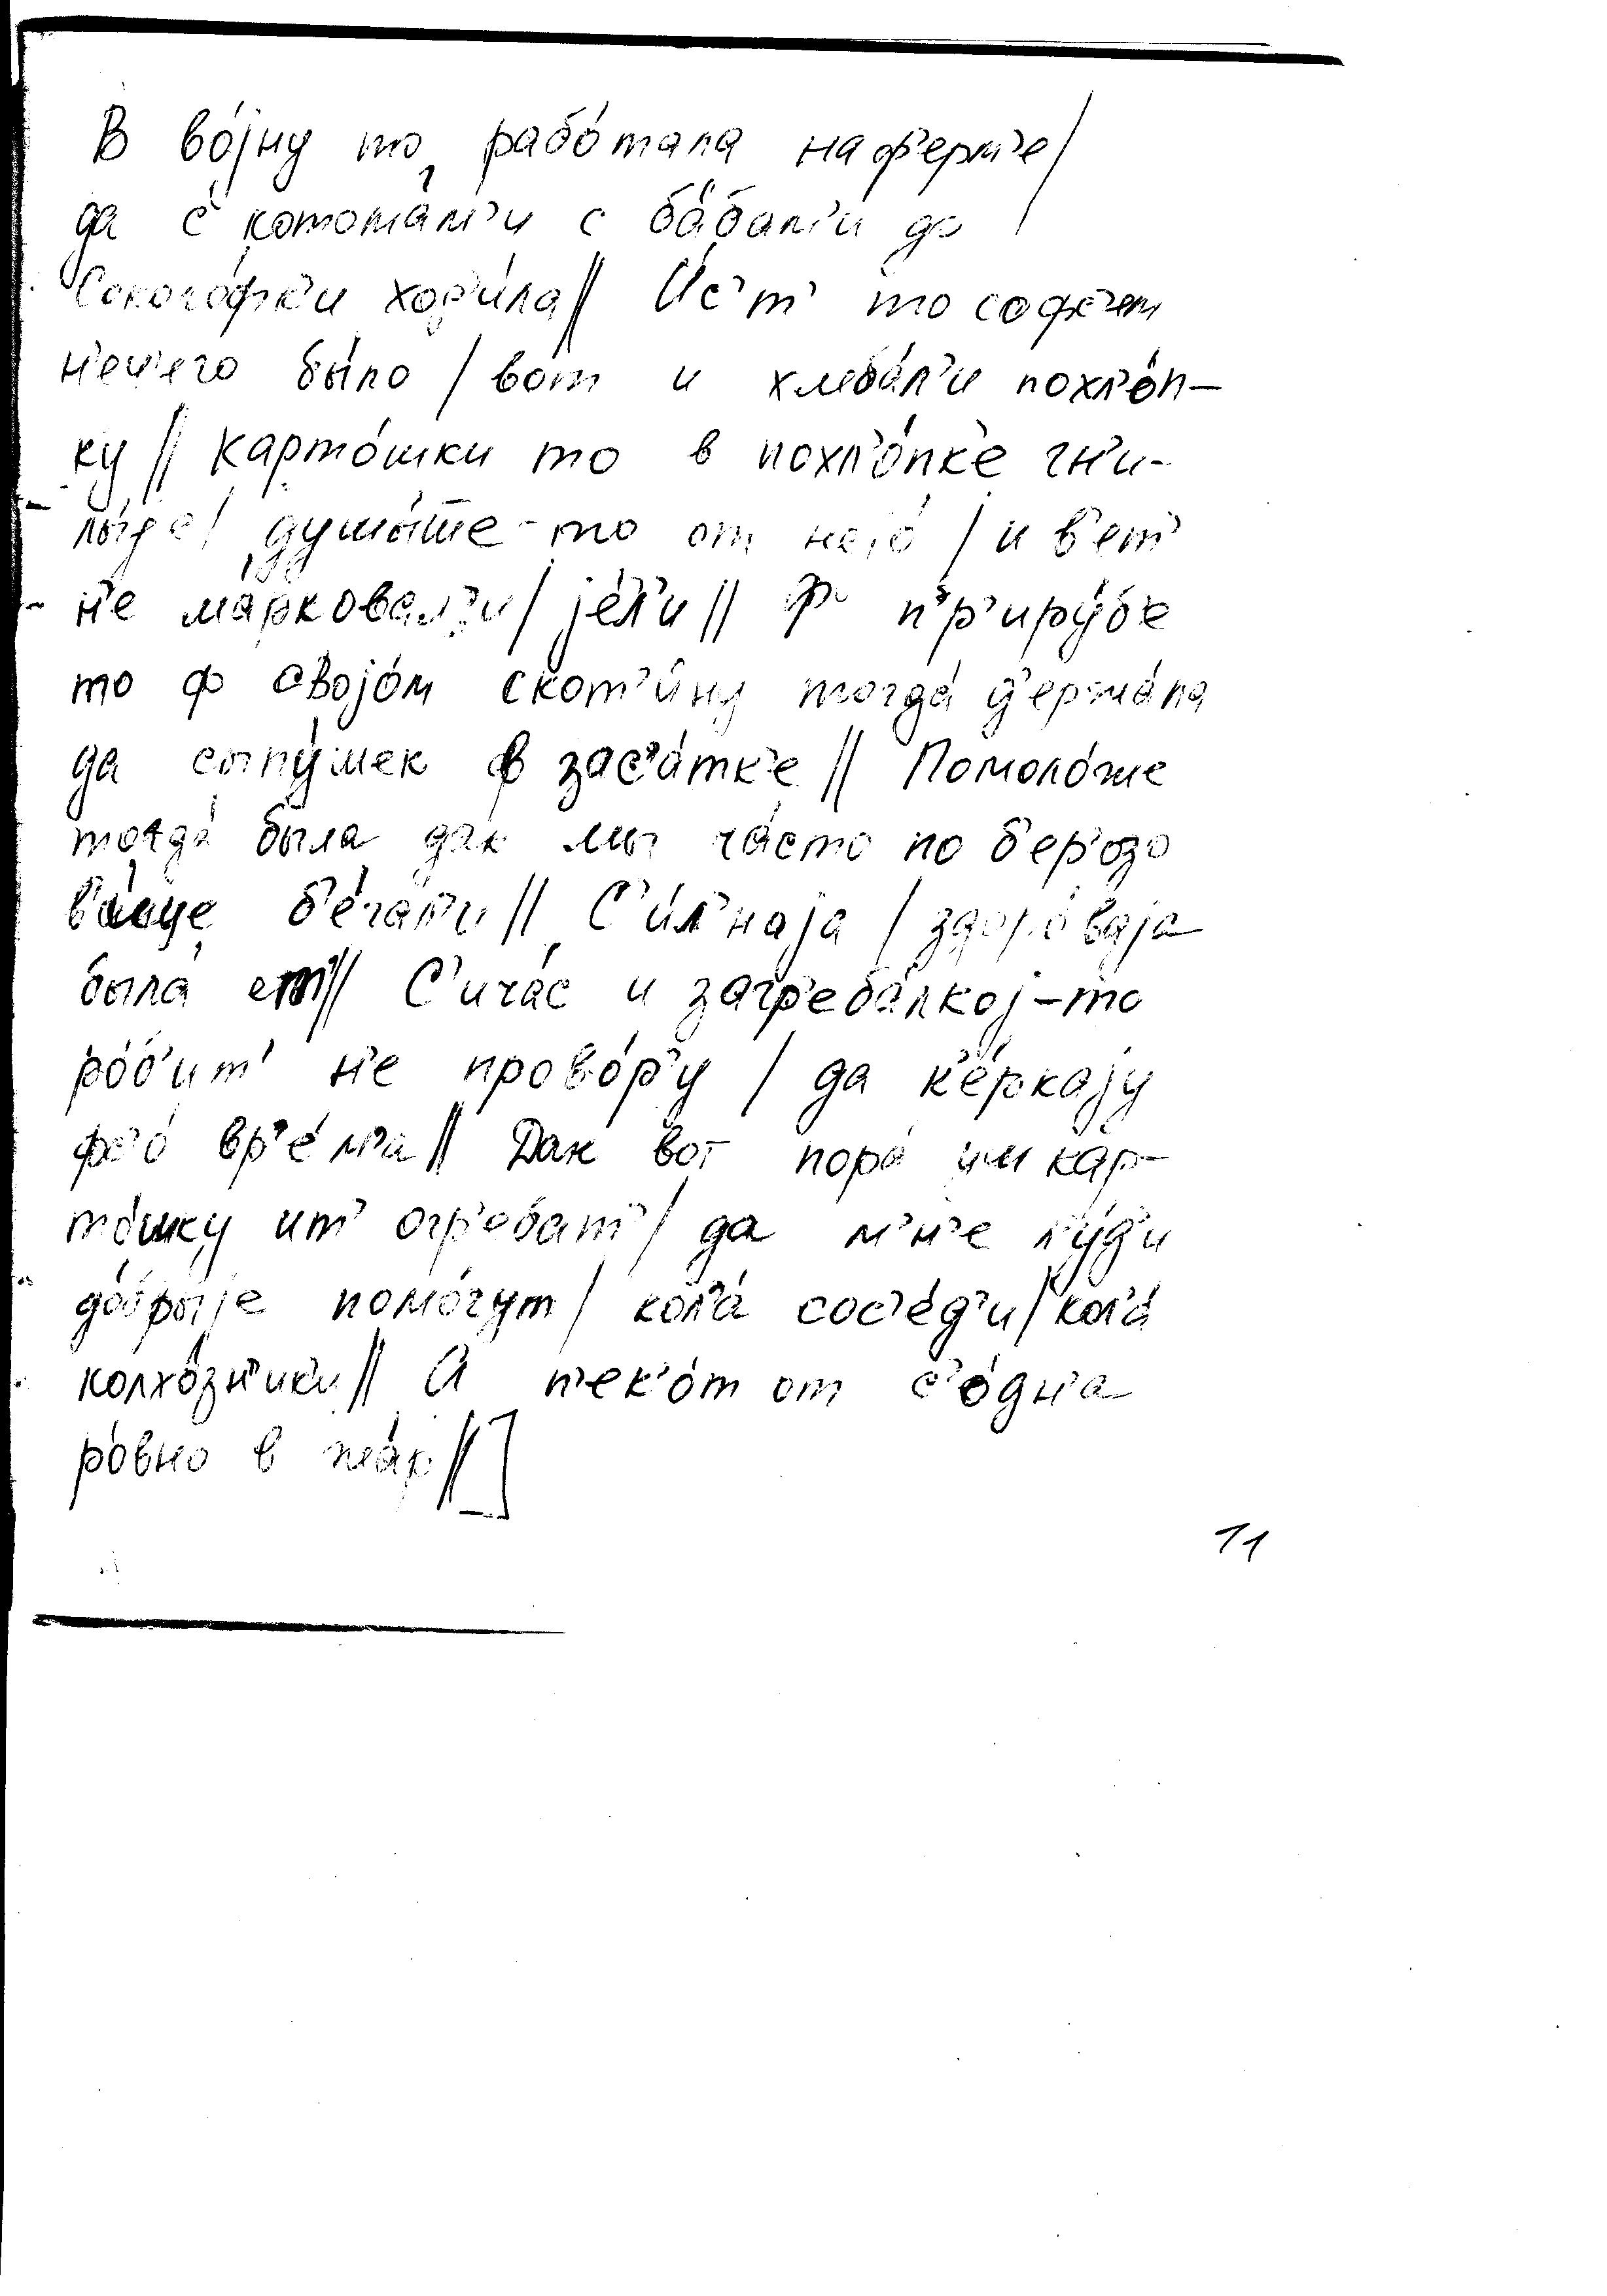 В во́јну то работала на ф'ерм'е/
да с котома́м'и с ба́бам'и до /
ход'и́ла// И́с'т' то софс'ем
н'еч'его бы́ло / вот и хлеба́л'и похл'о́п-
ку // карто́шки то в похл'о́пк'е гн'и-
лы́је/ -то от нејо́ / и в'ет'
н'е ма́рковал'и/ је́л'и // Ф пр'иру́б'е
то ф својо́м скот'и́ну тогда́ д'ержа́ла
да сыпу́шек ф зас'а́тк'е // Помоло́же
тогда́ была дак мы ча́сто по б'ер'озо
б'е́гал'и // С'и́л'наја / здоро́ваја
была́ ет'// С'ича́с и загр'еба́лкој-то
ро́б'ит' н'е прово́р'у / да к'е́ркају
фс'о́ вр'е́м'а // Дак вот пора́ им кар-
то́шку ит' огр'ебат' / да м'н'е л'у́д'и
до́брыје помо́гут / кол'а́ сос'е́д'и / кол'а́
колхо́зн'ик'и // А п'ек'о́т от с'о́дн'а
ро́вно в жа́р //]
11